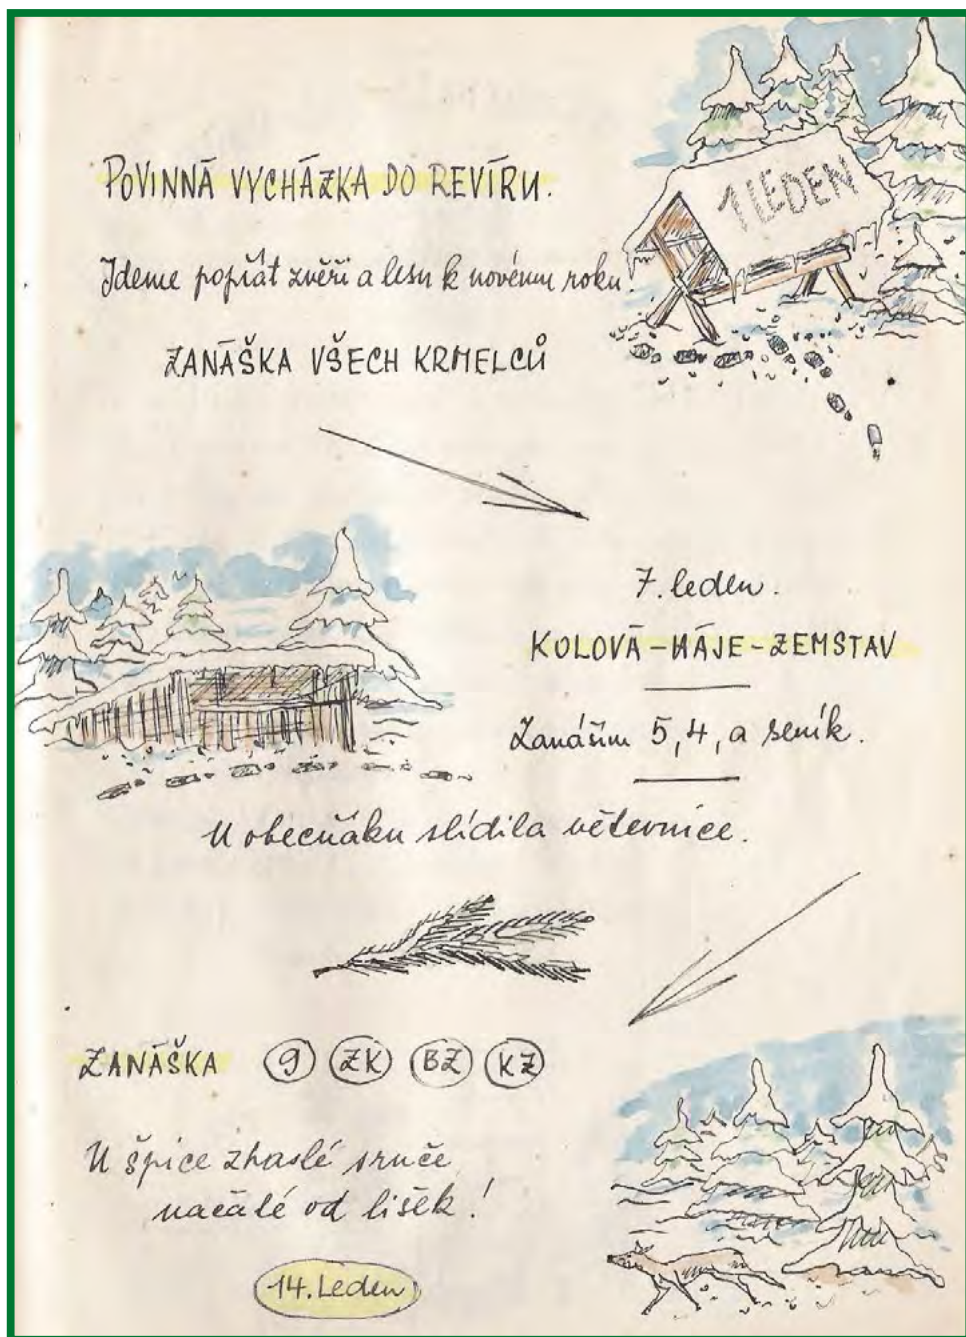 1 LEDEN
POVINNÁ VYCHÁZKA DO REVÍRU.
Jdeme popřát zvěři a lesu k novému roku!
ZANÁŠKA VŠECH KRMELCŮ
7. leden.
KOLOVÁ-HÁJE-ZEMSTAV
Zanáším 5, 4, a seník.
U obecňáku slídila větevnice.
ZANÁŠKA 9 ZK BZ KZ
U špice zhaslé srnče
načaté od lišek!
14. Leden